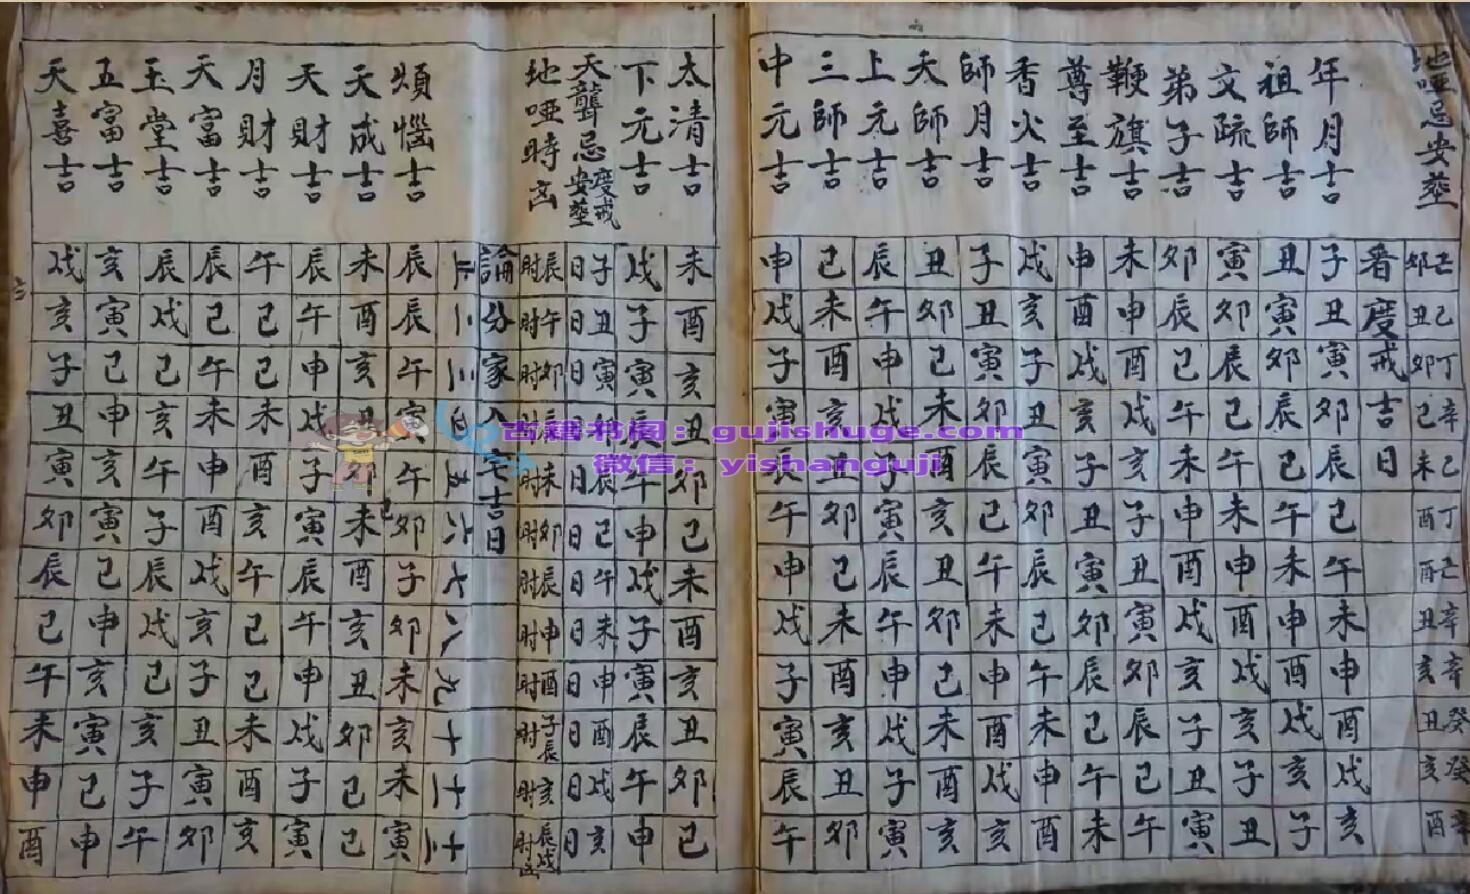 地啞忌安葬 丑己 卯丁 己辛 未己 酉丁 丑辛 亥辛 丑癸 亥癸
度戒吉日
年月吉 子丑寅卯辰己午未申酉戌亥
祖師吉 丑寅卯辰己午未申酉戌亥子
文疏吉 寅卯辰己午未申酉戌亥子丑
弟子吉 卯辰己午未申酉戌亥子丑寅
鞭旗吉 未申酉戌亥子丑寅卯辰己午
尊至吉 申酉戌亥子丑寅卯辰己午未
香火吉 戌亥子丑寅卯辰己午未申酉
師月吉 子丑寅卯辰己午未申酉戌亥
天師吉 丑卯己未酉亥丑卯己未酉亥
上元吉 辰午申戌子寅辰午申戌子寅
三師吉 己未酉亥丑卯己未酉亥丑卯
中元吉 申戌子寅辰午申戌子寅辰午
太清吉 未酉亥丑卯己未酉亥丑卯己
下元吉 戌子寅辰午申戌子寅辰午申
天聾忌安葬度戒 子日 丑日 寅日 卯日 辰日 己日 午日 未日 申日 酉日 戌日 亥日
地啞時凶 辰時 午時 卯時 辰時 未時 卯時 辰時 申時 酉時 子辰時 亥時 辰戌時
論分家 吉日
正二三四五六七八九十十一十二
煩惱吉 辰辰午寅午卯子卯未亥未寅
天成吉 未酉亥丑卯未酉亥丑卯己己
天財吉 辰午申戌子寅辰午申戌子寅
月財吉 午己己未酉亥午己己未酉亥
天富吉 辰己午未申酉戌亥子丑寅卯
玉堂吉 辰戌己亥午子辰戌己亥子午
五富吉 亥寅己申亥寅己申亥寅己申
天喜吉 戌亥子丑寅卯辰己午未申酉
古籍书阁：gujishuge.com
微信：yishanguji